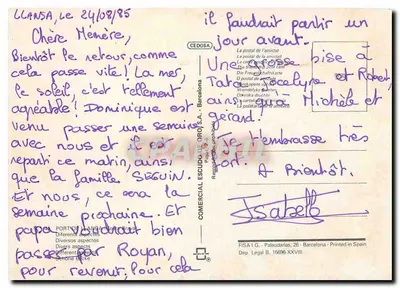 LLANSA, LE 24/08/85
Chère Mémère,
Bientôt le retour, comme
cela passe vite! La mer,
le soleil, c'est tellement
agréable! Dominique est
venu passer une semaine
avec nous et il est
reparti ce matin, ainsi
que la famille SEGUIN.
Et nous, ce sera la
semaine prochaine. Et
papa voudrait bien
passer par Royan,
pour revenir, Pour cela
il faudrait partir un
jour avant.
Une grosse bise à
Tata Jocelyne et Robert,
ainsi qu'à Michèle et
gérard!
Je t'embrasse très
fort.
A Bientôt.
Isabelle
CEDOSA
COMERCIAL ESCUDO DE ORO, S.A. - Barcelona
La postal de l'amistat
La postal de la amistad
Diferents aspectes
Diversos aspectos
FISA I.G. - Palaudarias, 26 - Barcelona - Printed in Spain
Dep. Legal B. 15696-XXVIII